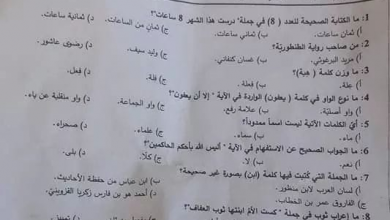 1: ما الكتابة الصحيحة للعدد ( 8) في جملة" درست هذا الشهر 8 ساعات"؟
أ) ثمان ساعات. ب) ثماني ساعات. ج) ثمانٍ من الساعات. د) ثمانية ساعات.
2: من صاحب رواية الطنطوريّة؟
أ) مريد البرغوثي. ب) غسان كنفاني. ج) وليد سيف. د) رضوى عاشور.
3: ما وزن كلمة ( هبة)؟
أ) علة. ب) فعة. ج) فلة. د) فعل.
4: ما نوع الواو في كلمة ( يعفون) الواردة في الآية " إلا أن يعفون"؟
أ) واو أصليّة. ب) علامة رفع. ج) واو الجماعة. د) واو منقلبة عن ياء.
5: أيّ الكلمات الآتية ليست اسماً ممدوداً؟
أ) ماء. ب) سماء. ج) علماء. د) صحراء.
6: ما الجواب الصحيح عن الاستفهام في الآية " أليس الله بأحكم الحاكمين"؟
أ) نعم. ب) لا. ج) كلّا. د) بلى.
7: ما الجملة التي كُتبت فيها كلمة (ابن) بصورة غير صحيحة؟
أ) لسان العرب لابن منظور. ب) ابن عباس من حفظة الأحاديث.
ج) الفاروق عمر بن الخطاب. د) أحمد هو بن فارس زكريا القزويني.
8: ما إعراب ثوب في جملة " كست الأمّ ابنتها ثوب العفاف"؟